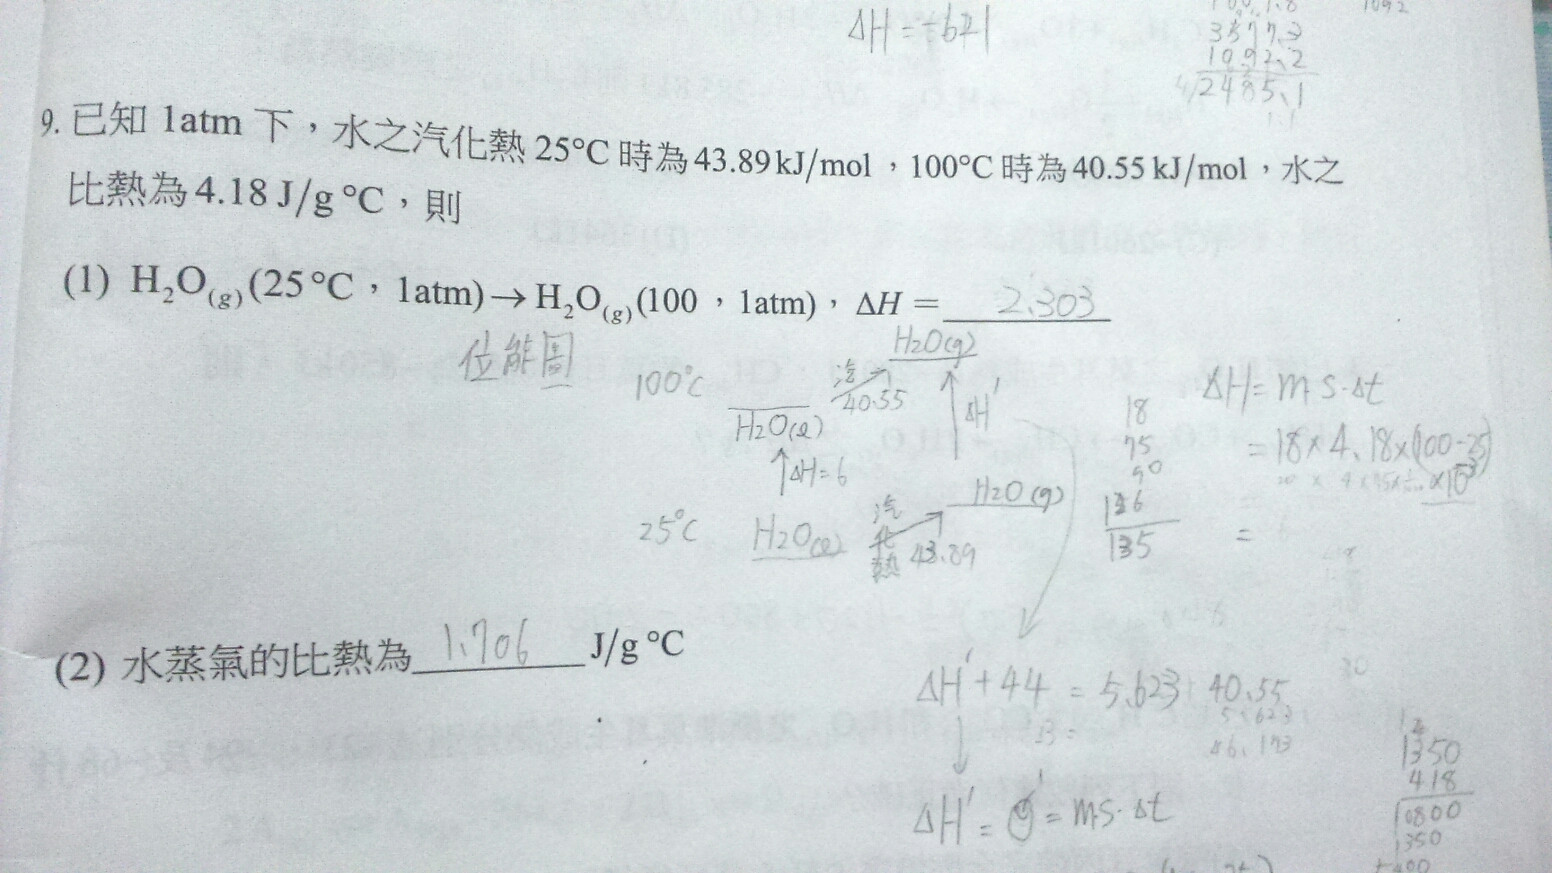 ΔH = -621
3577.3
1092.2
2485.1
9. 已知 1atm 下，水之汽化熱 25°C 時為 43.89 kJ/mol，100°C 時為 40.55 kJ/mol，水之
比熱為 4.18 J/g °C，則
(1) H₂O(g) (25°C，1atm) → H₂O(g) (100，1atm)，ΔH = 2.303
位能圖
100°C
H₂O(l)
汽 40.55
H₂O(g)
ΔH=6
ΔH'
25°C
H₂O(l)
汽化熱 43.89
H₂O(g)
18
75
90
126
135
ΔH = m s·Δt
= 18 × 4.18 × (100-25) × 10⁻³
=
(2) 水蒸氣的比熱為 1.706 J/g °C
ΔH' + 44 = 5.623 + 40.55
5.623
46.173
ΔH' = = ms·Δt
1350
418
10800
1350
5400